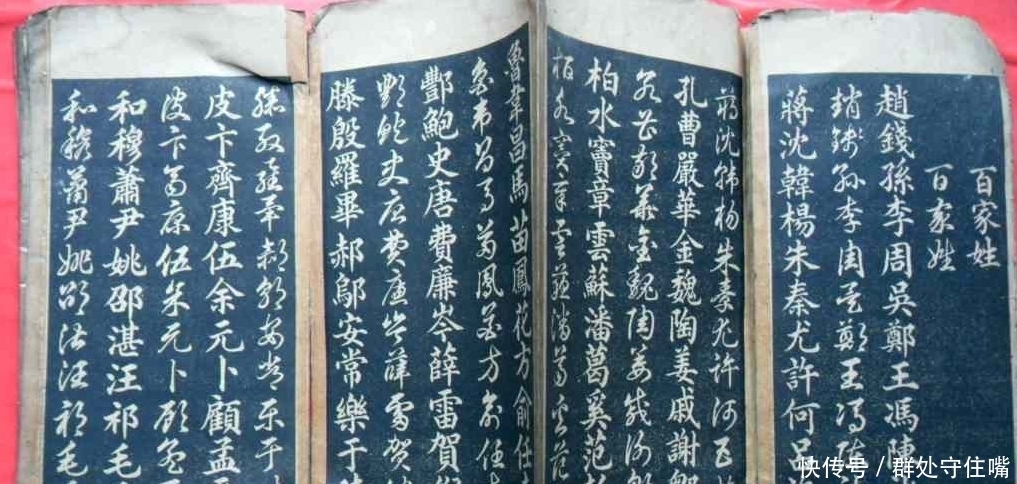 百家姓
百家姓
趙錢孫李周吳鄭王馮陳
趙錢孫李周吳鄭王馮陳
蔣沈韓楊朱秦尤許何呂
蔣沈韓楊朱秦尤許何呂
孔曹嚴華金魏陶姜戚謝鄒
孔曹嚴華金魏陶姜戚謝鄒
柏水竇章雲蘇潘葛奚范
柏水竇章雲蘇潘葛奚范
魯韋昌馬苗鳳花方俞任
魯韋昌馬苗鳳花方俞任
酆鮑史唐費廉岑薛雷賀倪
酆鮑史唐費廉岑薛雷賀
滕殷羅畢郝鄔安常樂于
滕殷羅畢郝鄔安常樂于
皮卞齊康伍余元卜顧孟
皮卞齊康伍余元卜顧孟
和穆蕭尹姚邵湛汪祁毛
和穆蕭尹姚邵湛汪祁毛
快传号 / 群处守住嘴